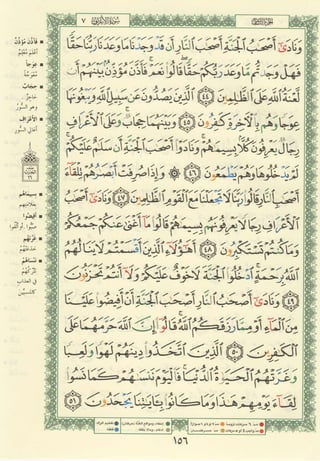 ٧ سُورَةُ الأَعْرَافِ الجُزْءُ الثَّامِنُ
وَنَادَىٰٓ أَصۡحَٰبُ ٱلۡجَنَّةِ أَصۡحَٰبَ ٱلنَّارِ أَن قَدۡ وَجَدۡنَا مَا وَعَدَنَا رَبُّنَا حَقّٗا
فَهَلۡ وَجَدتُّم مَّا وَعَدَ رَبُّكُمۡ حَقّٗاۖ قَالُواْ نَعَمۡۚ فَأَذَّنَ مُؤَذِّنُۢ بَيۡنَهُمۡ أَن
لَّعۡنَةُ ٱللَّهِ عَلَى ٱلظَّٰلِمِينَ ٤٤ ٱلَّذِينَ يَصُدُّونَ عَن سَبِيلِ ٱللَّهِ وَيَبۡغُونَهَا
عِوَجٗا وَهُم بِٱلۡأٓخِرَةِ كَٰفِرُونَ ٤٥ وَبَيۡنَهُمَا حِجَابٞۚ وَعَلَى ٱلۡأَعۡرَافِ
رِجَالٞ يَعۡرِفُونَ كُلَّۢا بِسِيمَىٰهُمۡۚ وَنَادَوۡاْ أَصۡحَٰبَ ٱلۡجَنَّةِ أَن سَلَٰمٌ عَلَيۡكُمۡۚ
لَمۡ يَدۡخُلُوهَا وَهُمۡ يَطۡمَعُونَ ٤٦ ۞ وَإِذَا صُرِفَتۡ أَبۡصَٰرُهُمۡ تِلۡقَآءَ
أَصۡحَٰبِ ٱلنَّارِ قَالُواْ رَبَّنَا لَا تَجۡعَلۡنَا مَعَ ٱلۡقَوۡمِ ٱلظَّٰلِمِينَ ٤٧ وَنَادَىٰٓ أَصۡحَٰبُ
ٱلۡأَعۡرَافِ رِجَالٗا يَعۡرِفُونَهُم بِسِيمَىٰهُمۡ قَالُواْ مَآ أَغۡنَىٰ عَنكُمۡ جَمۡعُكُمۡ
وَمَا كُنتُمۡ تَسۡتَكۡبِرُونَ ٤٨ أَهَٰٓؤُلَآءِ ٱلَّذِينَ أَقۡسَمۡتُمۡ لَا يَنَالُهُمُ
ٱللَّهُ بِرَحۡمَةٍۚ ٱدۡخُلُواْ ٱلۡجَنَّةَ لَا خَوۡفٌ عَلَيۡكُمۡ وَلَآ أَنتُمۡ تَحۡزَنُونَ
٤٩ وَنَادَىٰٓ أَصۡحَٰبُ ٱلنَّارِ أَصۡحَٰبَ ٱلۡجَنَّةِ أَنۡ أَفِيضُواْ عَلَيۡنَا
مِنَ ٱلۡمَآءِ أَوۡ مِمَّا رَزَقَكُمُ ٱللَّهُۚ قَالُوٓاْ إِنَّ ٱللَّهَ حَرَّمَهُمَا عَلَى
ٱلۡكَٰفِرِينَ ٥٠ ٱلَّذِينَ ٱتَّخَذُواْ دِينَهُمۡ لَهۡوٗا وَلَعِبٗا
وَغَرَّتۡهُمُ ٱلۡحَيَوٰةُ ٱلدُّنۡيَاۚ فَٱلۡيَوۡمَ نَنسَىٰهُمۡ كَمَا نَسُواْ
لِقَآءَ يَوۡمِهِمۡ هَٰذَا وَمَا كَانُواْ بِـَٔايَٰتِنَا يَجۡحَدُونَ ٥١
فَأَذَّنَ مُؤَذِّنٌ
عِوَجًا
حِجَابٌ
الأَعْرَاف
بِسِيمَاهُمْ
أَفِيضُوا
غَرَّتْهُمْ
نَنْسَاهُمْ
١٥٦